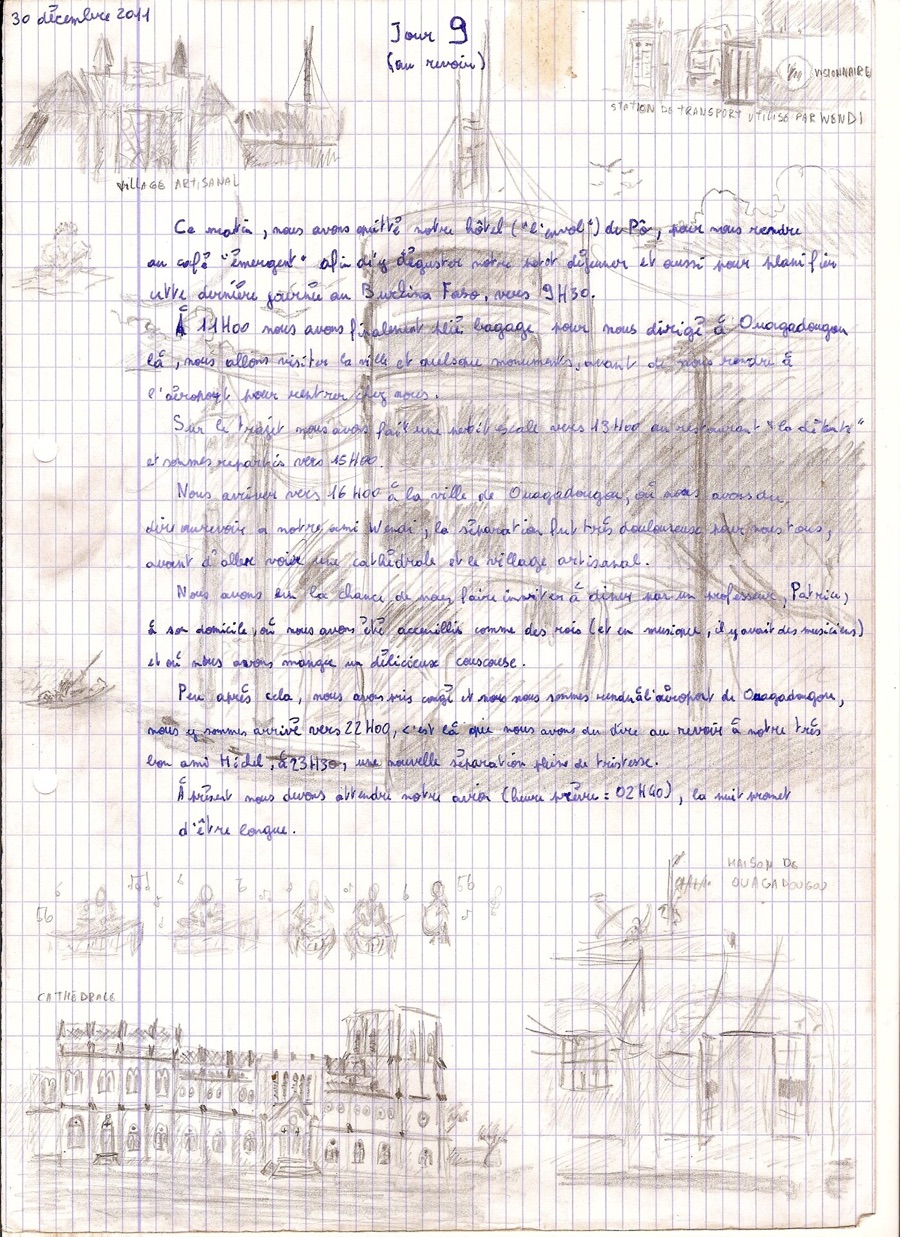 30 décembre 2011
Jour 9
(au revoir)
VISIONNAIRE
STATION DE TRANSPORT UTILISE PAR WENDI
VILLAGE ARTISANAL
Ce matin, nous avons quitté notre hôtel ("l'envol") de Pô, pour nous rendre
au café "émergent" afin d'y déguster notre petit déjeuner et aussi pour planifier
cette dernière journée au Burkina Faso, vers 9H30.
À 11H00 nous avons finalement plié bagage pour nous dirigé à Ouagadougou
là, nous allons visiter la ville et quelque monuments, avant de nous rendre à
l'aéroport pour rentrer chez nous.
Sur le trajet nous avons fait une petit escale vers 13H00 au restaurant "la détente"
et sommes repartis vers 15H00.
Nous arriver vers 16H00 à la ville de Ouagadougou, où nous avons du
dire aurevoir a notre ami Wendi, la séparation fut très douloureuse pour nous tous,
avant d'aller voir une cathédrale et le village artisanal.
Nous avons eu la chance de nous faire inviter à diner par un professeur, Patrice,
à son domicile, où nous avons été accueillis comme des rois (et en musique, il y avait des musiciens)
et où nous avons mangé un délicieux couscouse.
Peu après cela, nous avons pris congé et nous nous sommes rendu à l'aéroport de Ouagadougou,
nous y sommes arrivé vers 22H00, c'est là que nous avons du dire au revoir à notre très
bon ami Hidel, à 23H30, une nouvelle séparation pleine de tristesse.
À présent nous devons attendre notre avion (heure prévue = 02H40), la nuit promet
d'être longue.
MAISON DE
OUAGADOUGOU
CATHÉDRALE